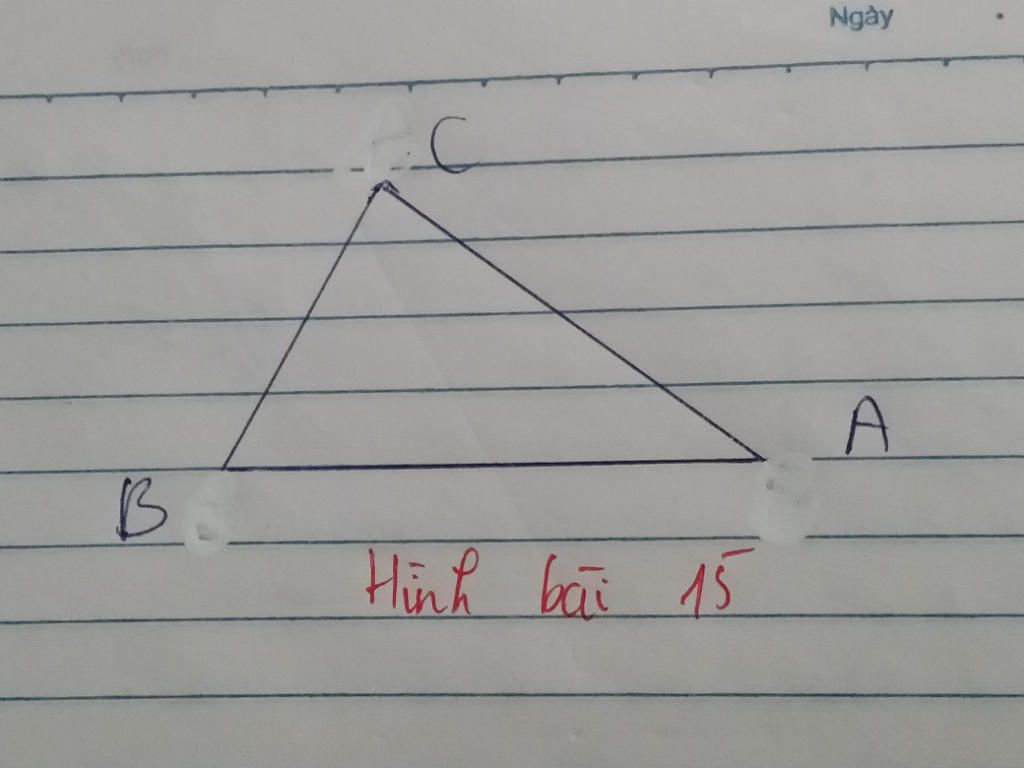 Ngày
C
A
B
Hình bài 15